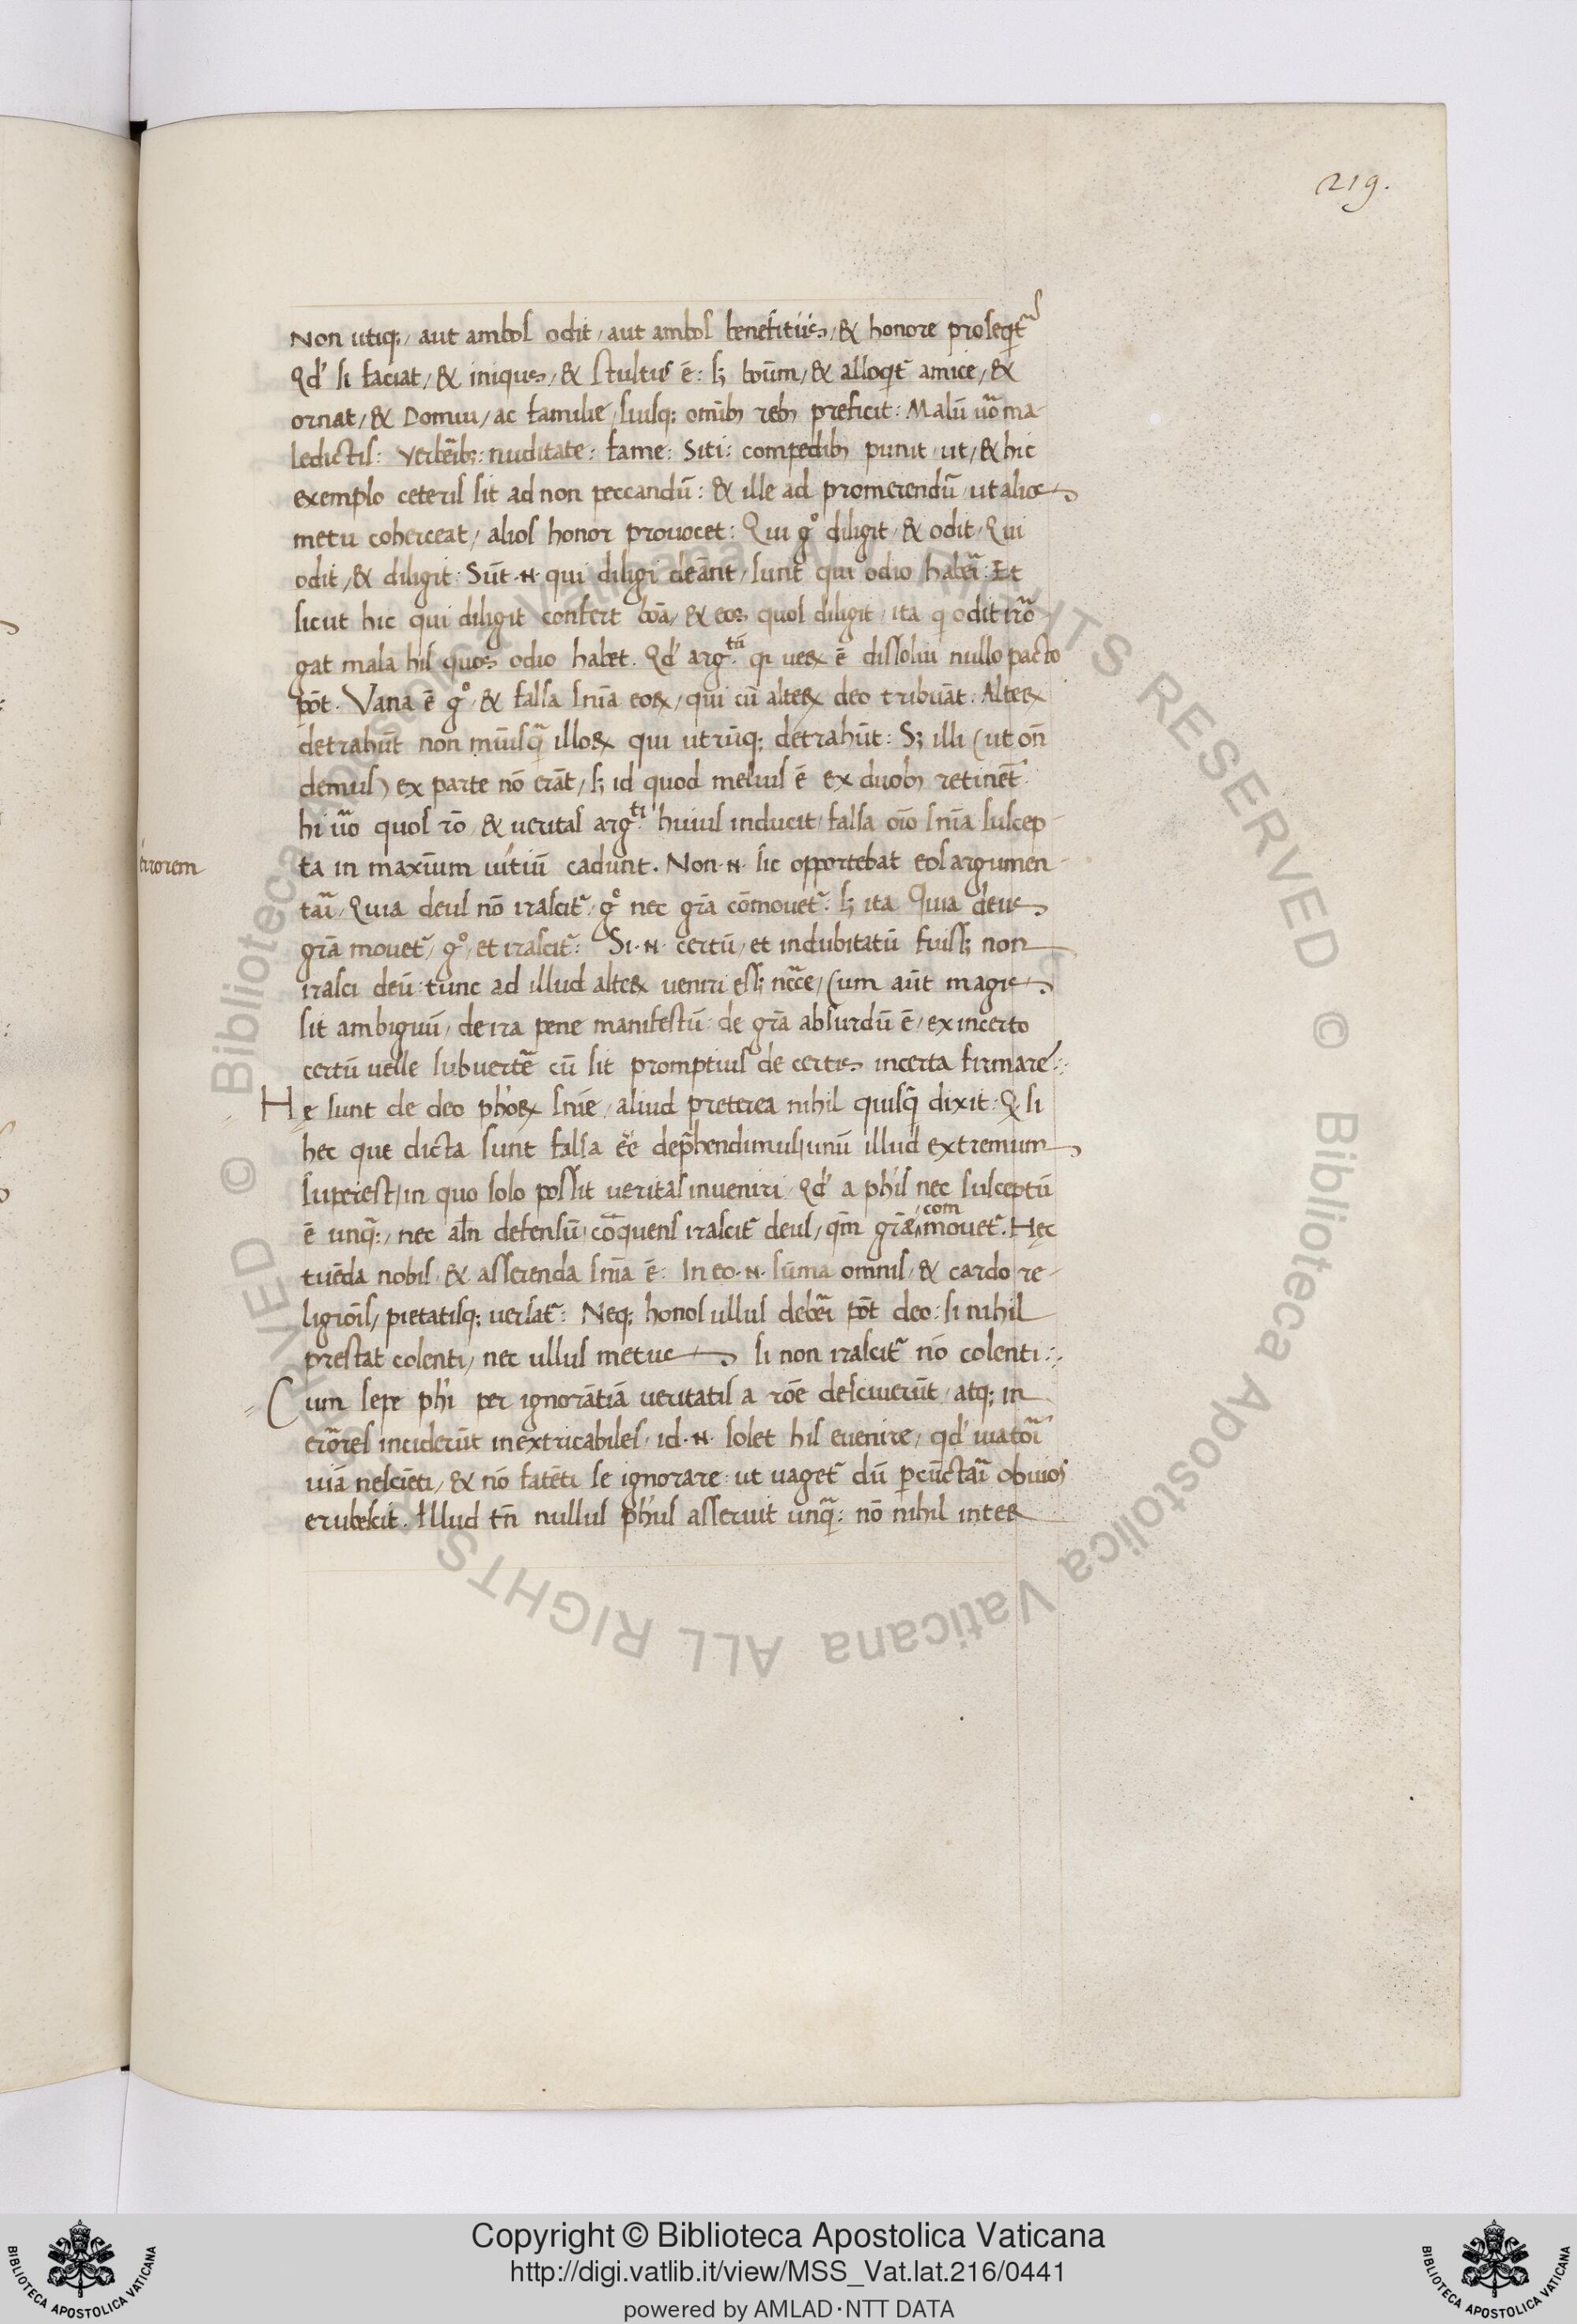 219.
Non utiq;, aut ambos odit, aut ambos benefitiis, & honore proseqt᷑
Qd' si faciat, & iniqus, & stultus ē: s; boūm, & alloqt᷑ amice, &
ornat, & Domui, ac familie, suisq; omīb; reb; preficit: Malū u͞o ma-
ledictis: Verbēib;: nuditate: fame: Siti: compedib; punit ut, & hic
exemplo ceteris sit ad non peccandū: & ille ad promerendū, ut alios
metu coherceat, alios honor prouocet: Qui g° diligit, & odit, Qui
odit, & diligit: Sūt .N. qui diligi deānt, sunt qui odio habēi: Et
sicut hic qui diligit confert bōa, & eos quos diligit, ita q odit irō-
gat mala his quos odio habet. Qd' arg.tū qi ueꝝ ē dissolui nullo pacto
pōt. Vana ē g°, & falsa snīa eoꝝ, qui cū alteꝝ deo tribuāt. Alteꝝ
detrahūt non mīusq̄ illoꝝ qui utrūq; detrahūt: S; illi (ut on̄
demus) ex parte nō erāt, s; id quod melius ē ex duob; retinēt
hi u͞o quos rō, & ueritas arg.ti huius inducit, falsa oīo snīa suscep-
errorem
ta in maxīum uítiū cadunt. Non .N. sic opportebat eos argumen-
tāi, Quia deus nō irascit᷑, g° nec grā cōmouet᷑. s; ita Quia deus
grā mouet᷑, g°, et irascit᷑: Si .N. certū, et indubitatū fuiss; non
irasci deū: tunc ad illud alteꝝ ueniri ess; ncc̄e, Cum aūt magis
sit ambiguū, de ira pene manifestū: de grā absurdū ē, ex incerto
certū uelle subuertē cū sit promptius de certis incerta firmare:·
He sunt de deo ph'oꝝ snīe, aliud preterea nihil quisq̄ dixit: Q, si
hec que dicta sunt falsa ēe dep̄hendimus, unū illud extremum
superest, in quo solo possit ueritas inueniri, Qd' a phis nec susceptū
ē unq̄:, nec aln̄ defensū, cōquens irascit᷑ deus, qm̄ grā com mouet᷑. Hęc
tuēda nobis, & asserenda snīa ē: In eo .N. sūma omnis, & cardo re-
ligiōis, pietatisq; uersat᷑: Neq; honos ullus debēi pōt deo: si nihil
prestat colenti, nec ullus metus si non irascit᷑ nō colenti:·
Cum sepe phi per ignorātiā ueritatis a rōe desciuerūt, atq; in
erōres inciderūt inextricabiles, id .N. solet his euenire, qd' uiatōi
uiā nesciēti, & nō fatēti se ignorare: ut uaget᷑ dū pcūctāi obuios
erubescit. Illud tn̄ nullus ph'us asseruit unq̄: nō nihil inter
Copyright © Biblioteca Apostolica Vaticana
http://digi.vatlib.it/view/MSS_Vat.lat.216/0441
powered by AMLAD·NTT DATA